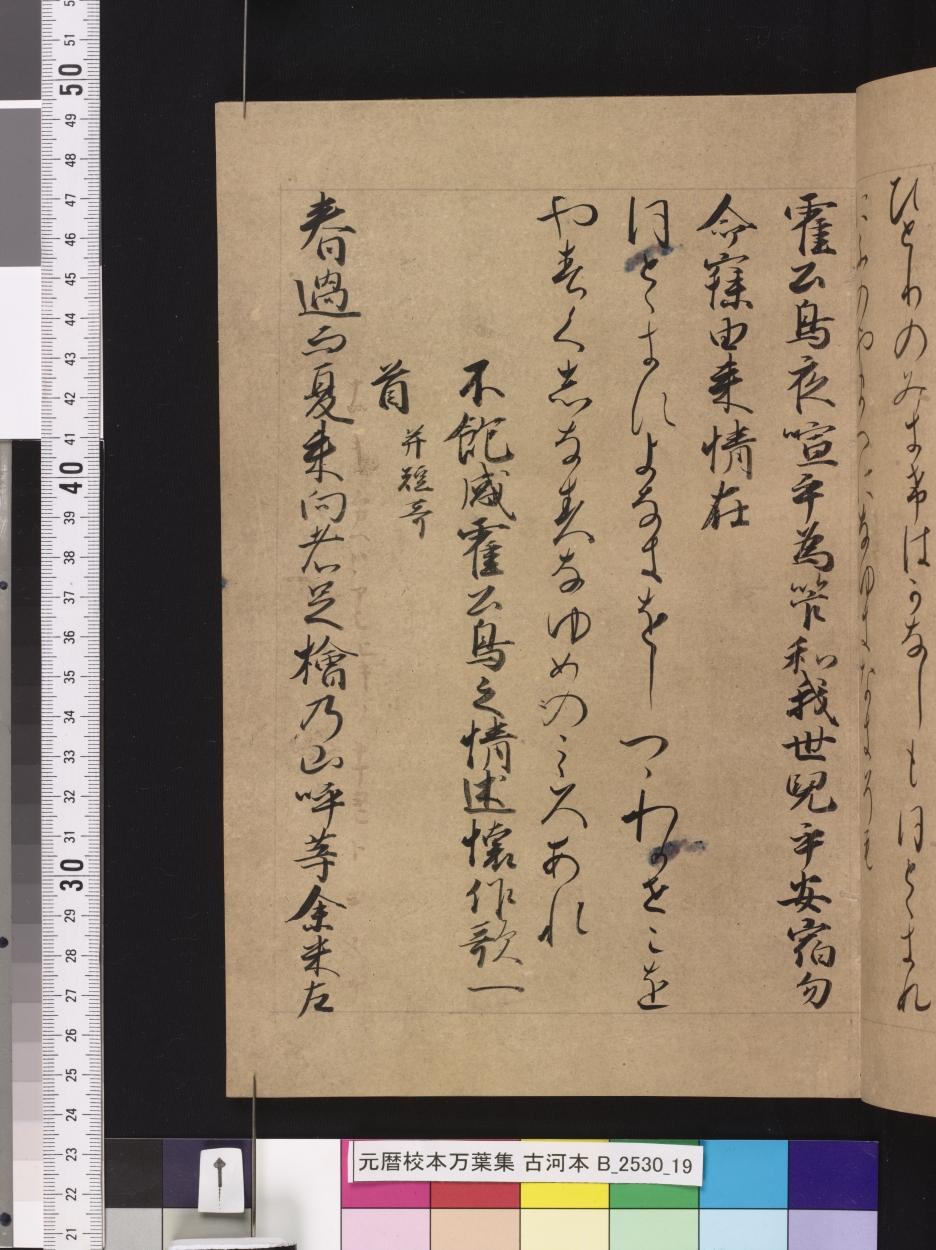 ひとりのみきけはかなしもほとゝきす
霍公鳥夜喧乎為管和我世兒乎安宿勿
令寐由来情在
ほとゝきすよなきをしつゝわかせこを
やすくしなすなゆめのこゝろあれ
不飽感霍公鳥之情述懐作歌一
首 并短哥
春過而夏来向者足檜乃山呼等余米左
元暦校本万葉集 古河本 B_2530_19